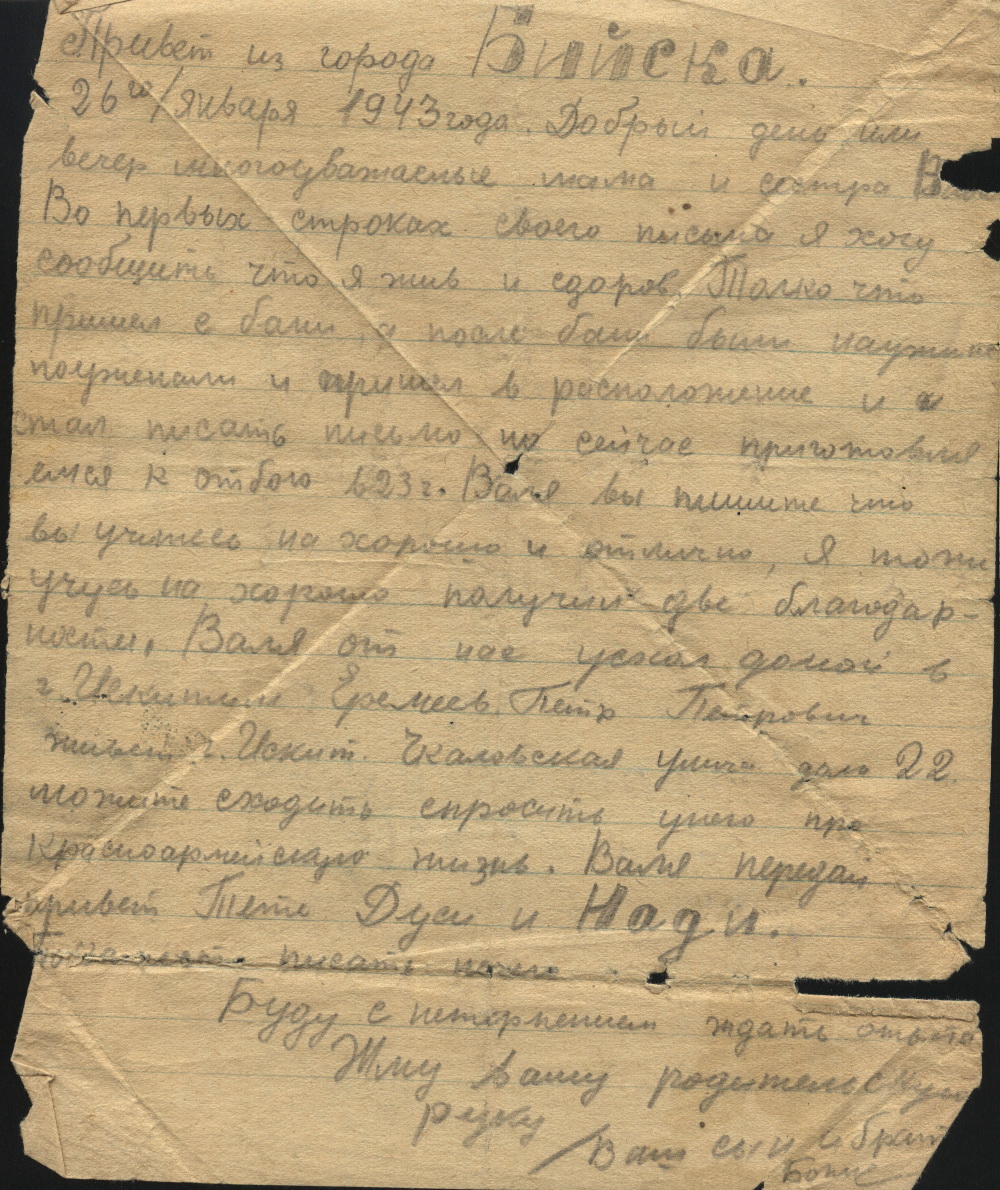 Привет из города Бийска.
26го/января 1943 года. Добрый день или
вечер многоуважаемые мама и сестра
Во первых строках своего письма я хочу
сообщить что я жив и здоров. Толко что
пришел с бани, а после бани были на ужине
поуженали и пришел в росположение и я
стал писать письмо но сейчас приготовля
емся к отбою в 23 г. Валя вы пишите что
вы учитесь на хорошо и отлично, я тоже
учусь на хорошо получил две благодар-
ности. Валя от нас уехал домой в
г. Искитим Еремеев Петр Петрович
живет г. Искит. Чкаловская улица дом 22.
можите сходить спросить унего про
Красноармейскую жизнь. Валя передай
привет Тете Дуси и Нади.
писать нечего
Буду с неторпением ждать ответа
Жму вашу родительскую
руку
Ваш сын и брат